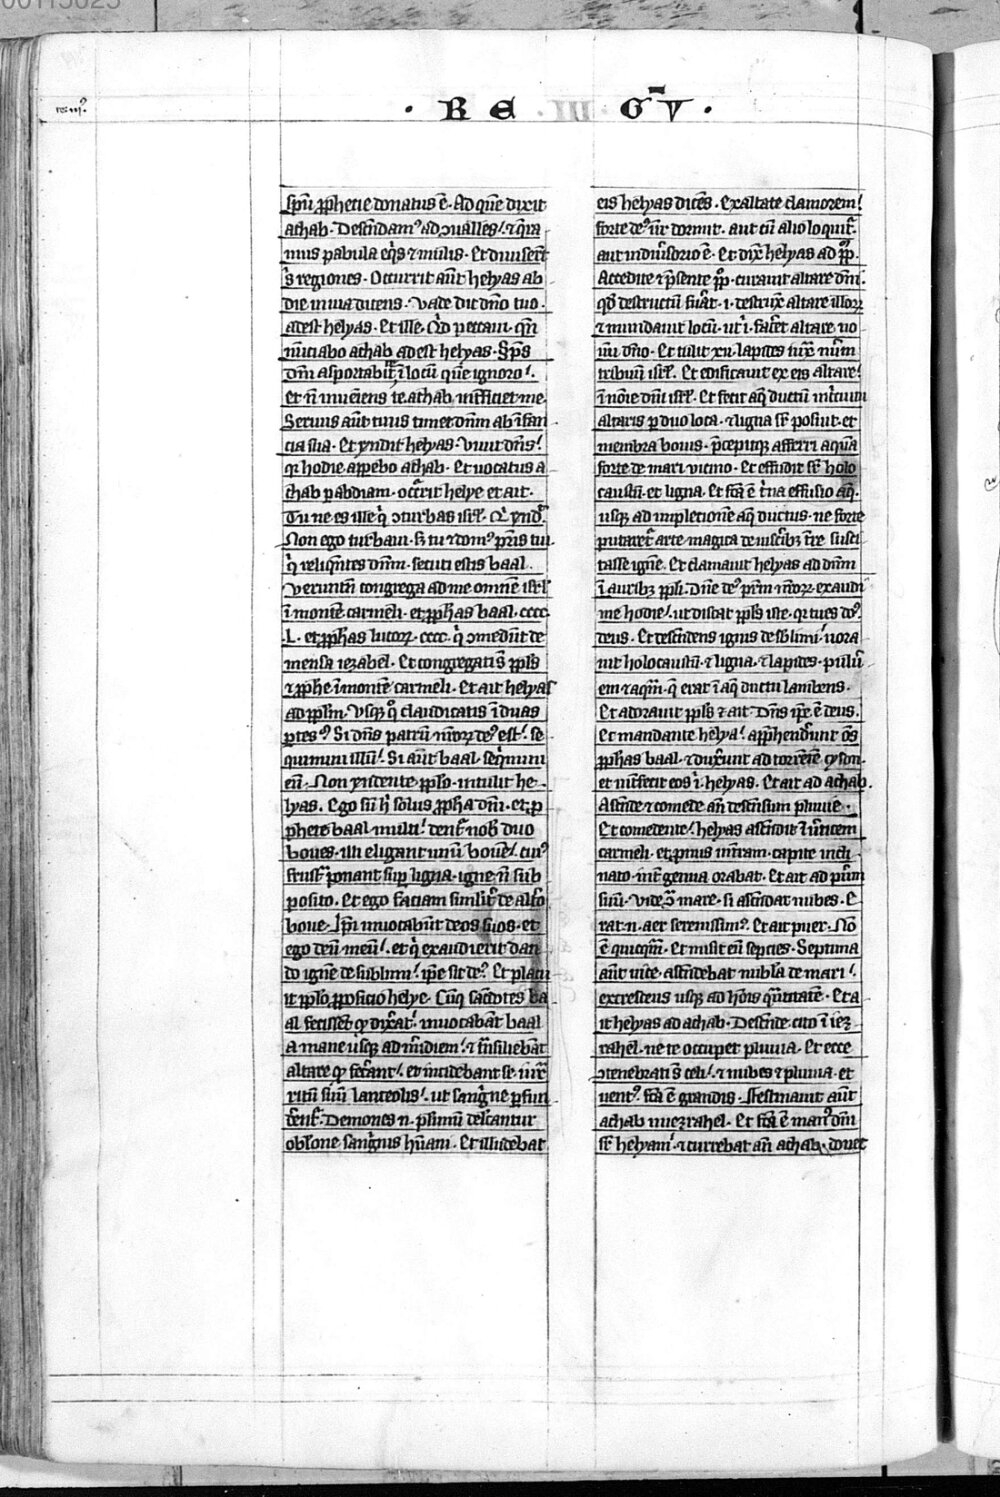 · R E · III · G̅ V ·
sp̅m ꝓphetie donatus ē. Ad quē dixit
achab. Descēdamꝰ ad ↄualles. ⁊ q̄ra
mus pabula eq̇s ⁊ mulis. Et diuiser̄t
regiones. Occurrit aūt helyas ab
die in uia dicens. Vade dic dn̄o tuo.
adest helyas. Et ille. Qͥd peccaui. qn̄
nūciabo achab adest helyas. Sp̄s
dn̄i asportabit te ī locū quē ignoro.
et n̄ inueniens te achab interficiet me.
Seruus aūt tuus timet dn̄m ab īfan
cia sua. Et rn̄dit helyas. Viuit dn̄s.
qꝛ hodie apꝑebo achab. Et uocatus a
chab ꝑ abdiam. occ̄rit helye et ait.
Tu ne es ille qͥ ↄturbas isrl̄. Qͥ rn̄d.
Non ego turbaui. s̄ tu ⁊ domꝰ pr̄is tui.
qͥ reliqͥstis dn̄m. secuti estis baal.
Veruntn̄ congrega ad me omnē isrl̄
ī monte carmeli. et ꝓph̄as baal. cccc.
L. et ꝓph̄as lucoꝝ. cccc. qͥ ↄmedūt de
mensa iezabel. Et congregatꝰ ē ppl̄s
⁊ ꝓphe ī monte carmeli. Et ait helyas
ad ppl̄m. Vsqꝫ qͦ claudicatis ī duas
ꝑtes. Si dn̄s patrū n̄roꝝ deꝰ est. se
quimini illū. Si aūt baal. seqͥmini
eū. Non rn̄dente ppl̄o. intulit he
lyas. Ego sū hͥ solus ꝓph̄a dn̄i. et ꝓ
phete baal multi. dent̄ nob̄ duo
boues. illi eligant unū bouē. cuiꝰ
frusta ponant suꝑ ligna. igne n̄ sub
posito. Et ego faciam simil̄r de alt̄o
boue. Ip̄i inuocabūt deos suos. et
ego deū meū. et qͥ exaudierit dan
do ignē de sublimi. ip̄e sit deꝰ. Et placu
it ppl̄o ꝓpositio helye. Cūqꝫ sac̄dotes ba
al fecissēt qͦ dix̄at. inuocabāt baal
a mane usqꝫ ad m̄idiem. ⁊ tn̄siliebāt
altare qͦ fec̄ant. et incidebant se. iux̄
ritū suū lanceolis. ut sangͥne ꝑfun
der̄et. Demones n. p̄simū delc̄antur
obl̄one sangͥnis hūani. Et illudebat
eis helyas dicēs. Exaltate clamorem.
forte deꝰ ur̄ dormit. aut cū alio loquit̄.
aut in diu̇sorio ē. Et dix̄ helyas ad pp̄m.
Accedite ⁊ p̄sente pp̄o. curauit altare dn̄i.
qd̄ destructū fūat. i. destrux̄ altare illoꝝ
⁊ mundauit locū. ut i. fac̄et altare no
uū dn̄o. Et tulit xii. lapides iux̄ nūm
tribuū isrl̄. Et edificauit ex eis altare.
ī noīe dn̄i isrl̄. Et fecit aq̄ ductū in c̄cuitu
altaris ꝑ duo loca. ⁊ ligna sr̄ posuit. et
membra bouis. p̄cepitqꝫ afferri aquā
forte de mari uicino. Et effudit sr̄ holo
caustū. et ligna. Et fcā ē t̄na effusio aq̄.
usqꝫ ad impletionē aq̄ ductus. ne forte
putaret̄ arte magica de uisc̄ibꝫ t̄re susci
tasse ignē. Et clamauit helyas ad dn̄m
ī auribꝫ ppl̄i. Dn̄e deꝰ pr̄m nr̄oꝝ. exaudi
me hodie. ut discat ppl̄s iste. qꝛ tu es dn̄s
deus. Et descendens ignis de sb̄limi. uora
uit holocaustū. ⁊ ligna. ⁊ lapides. puluͥ
em ⁊ aqm̄. q̄ erat ī aq̄ ductu lambens.
Et adorauit ppl̄s ⁊ ait. Dn̄s ip̄e ē deus.
Et mandante helya. apꝑhenderunt oēs
ꝓph̄as baal. ⁊ duxerunt ad torrētē cyson.
et int̄fecit eos ī. helyas. Et ait ad achab.
Ascēde ⁊ comede an̄ descēsum pluuie.
Et comedente. helyas ascēdit ī u̇ticem
carmeli. et pͥmus in t̄ram. capite incli
nato. int̄ genua orabat. Et ait ad pueͥum
suū. Vide mare. si ascēdat nubes. E
rat n. aer serenissimꝰ. Et ait puer. Nō
ē quicqͣm. Et misit eū septies. Septima
aūt uice. ascēdebat nubl̄a de mari.
excrescens usqꝫ ad hōis qͣntitatē. Et a
it helyas ad achab. Descēde cito ī iez
rahel. ne te occupet pluuia. Et ecce
ↄtenebrati s̄ celi. ⁊ nubes ⁊ pluuia. et
uentꝰ. fcā ē grandis. Festinauit aūt
achab in iezrahel. Et fcā ē manꝰ dn̄i
sr̄ helyam. ⁊ currebat an̄ achab. donec